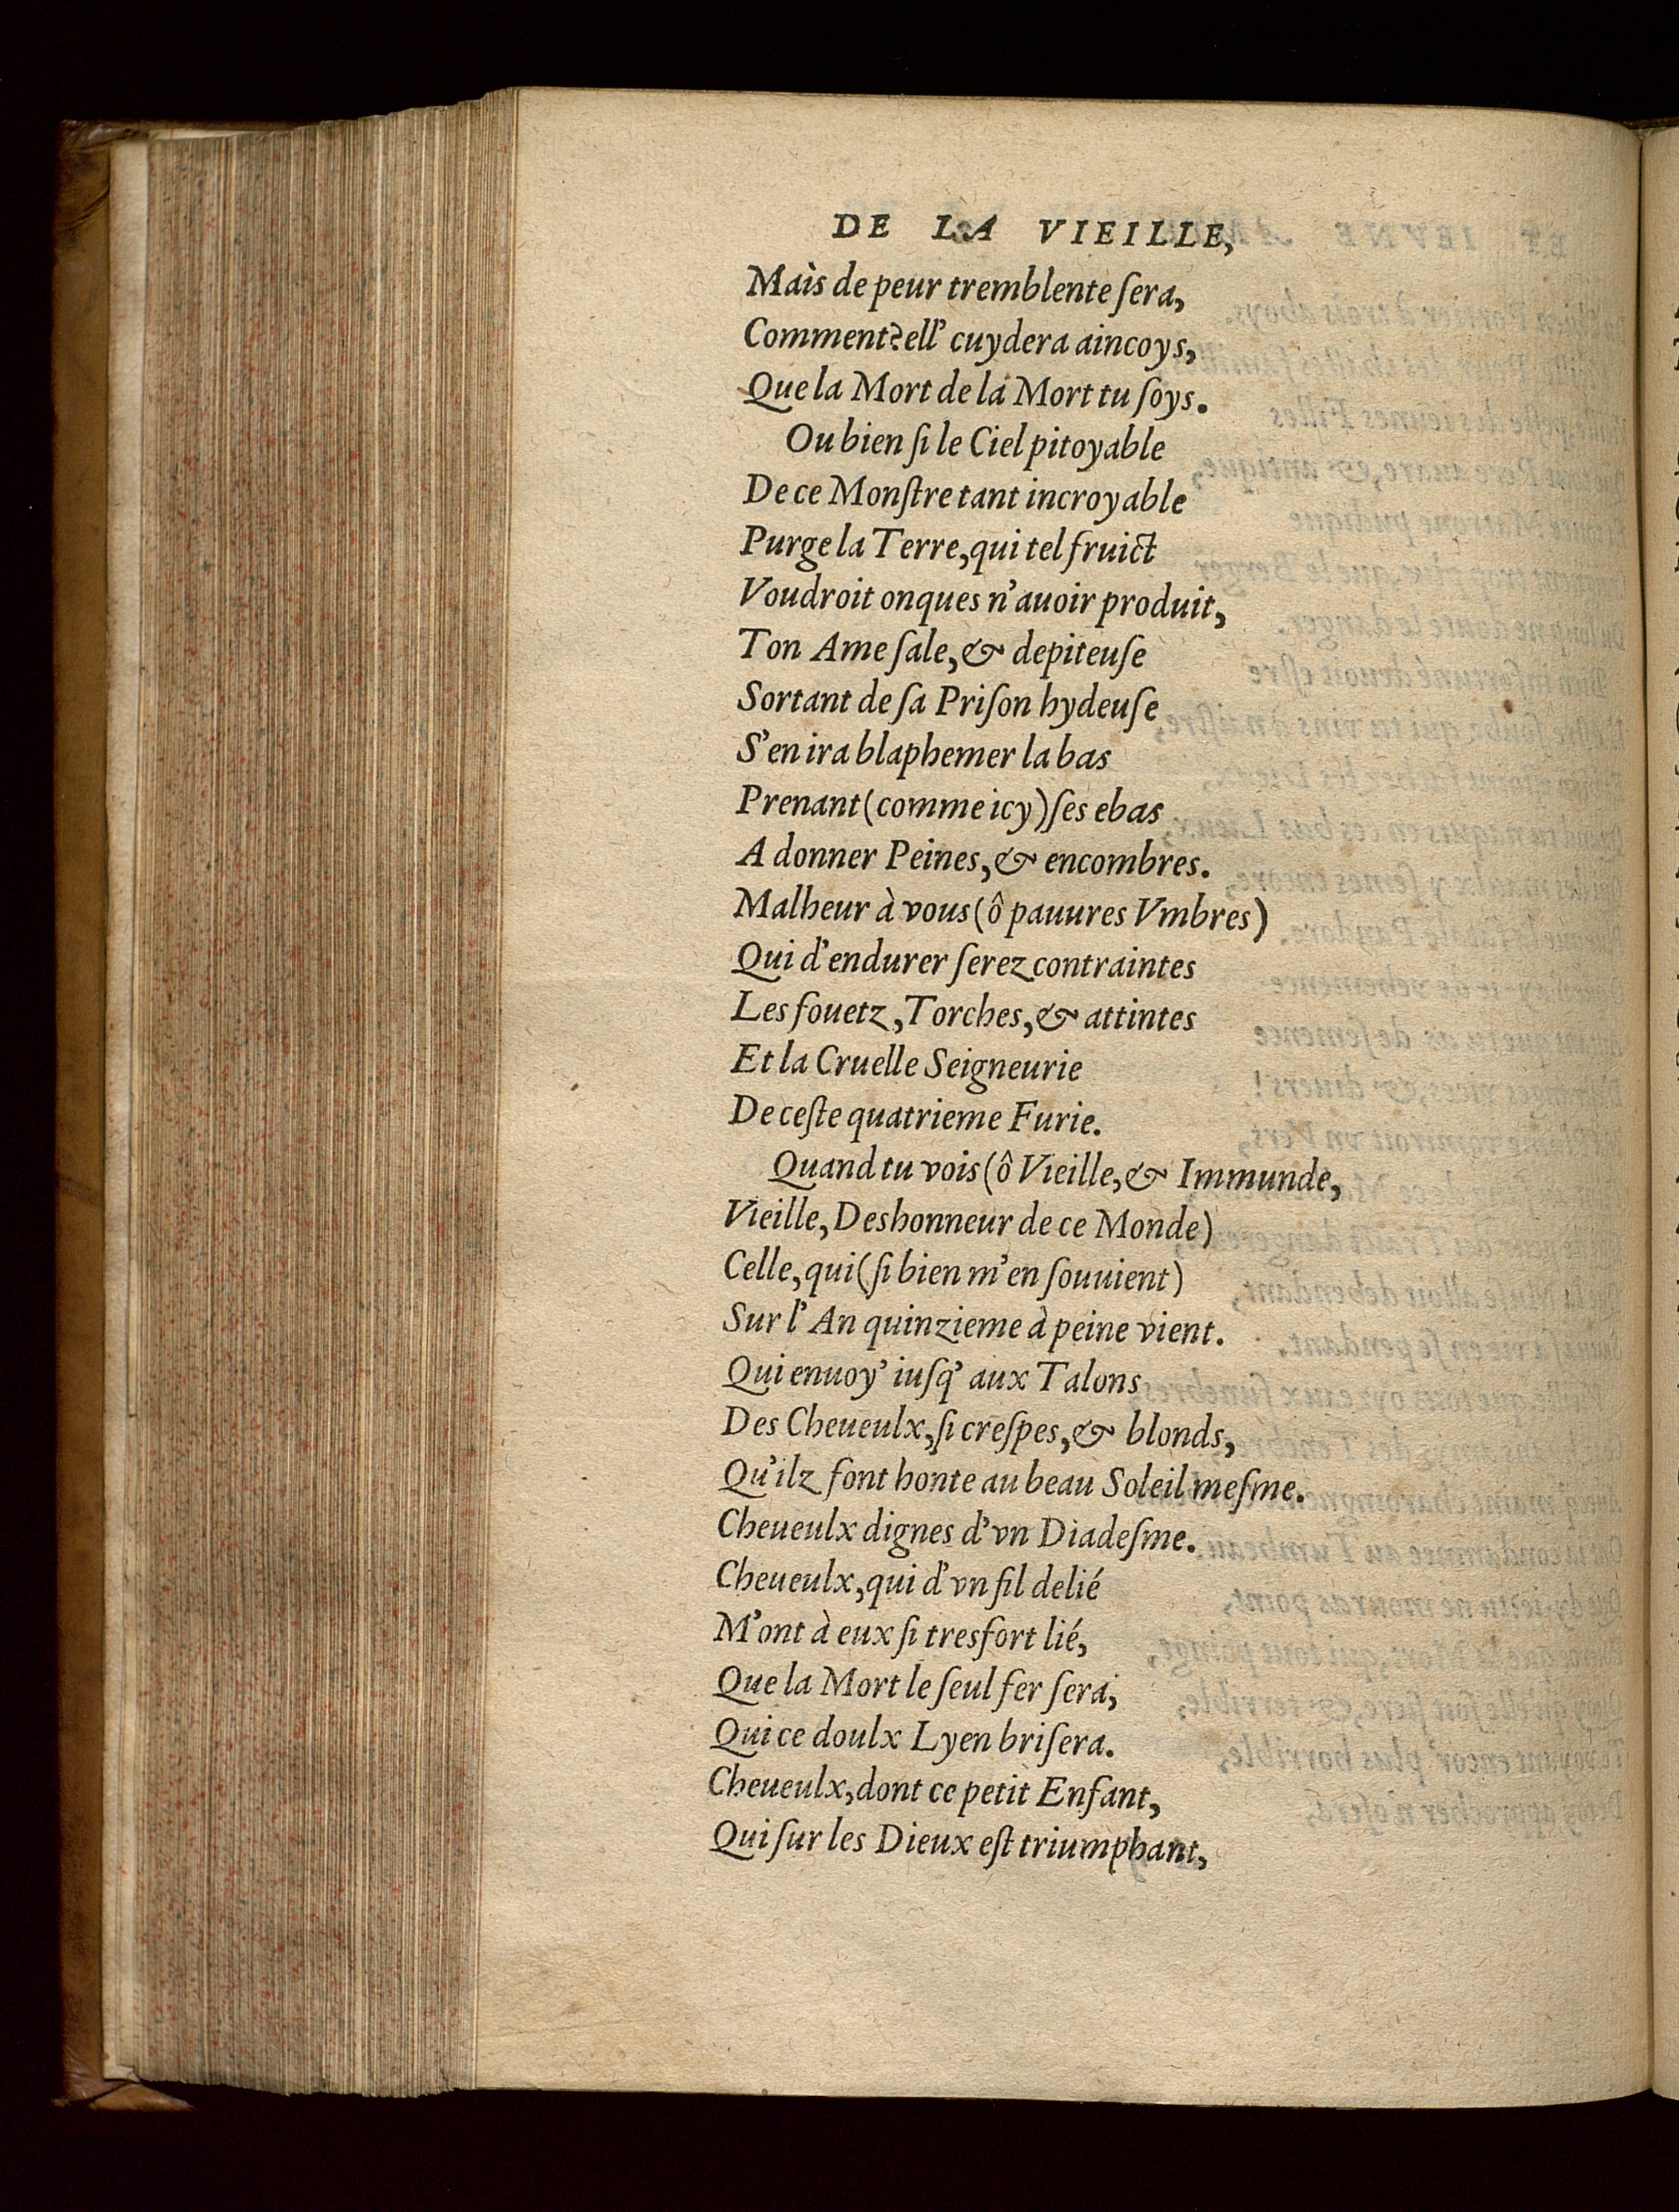 DE LA VIEILLE,
Mais de peur tremblente ſera,
Comment? ell' cuydera aincoys,
Que la Mort de la Mort tu ſoys.
Ou bien ſi le Ciel pitoyable
De ce Monſtre tant incroyable
Purge la Terre, qui tel fruict
Voudroit onques n'auoir produit,
Ton Ame ſale, & depiteuſe
Sortant de ſa Priſon hydeuſe
S'en ira blaphemer la bas
Prenant (comme icy) ſes ebas
A donner Peines, & encombres.
Malheur à vous (ô pauures Vmbres)
Qui d'endurer ſerez contraintes
Les fouetz, Torches, & attintes
Et la Cruelle Seigneurie
De ceſte quatrieme Furie.
Quand tu vois (ô Vieille, & Immunde,
Vieille, Deshonneur de ce Monde)
Celle, qui (ſi bien m'en ſouuient)
Sur l'An quinzieme à peine vient.
Qui enuoy' iuſq' aux Talons
Des Cheueulx, ſi creſpes, & blonds,
Qu'ilz font honte au beau Soleil meſme.
Cheueulx dignes d'vn Diadeſme.
Cheueulx, qui d'vn fil delié
M'ont à eux ſi tresfort lié,
Que la Mort le ſeul fer ſera,
Qui ce doulx Lyen briſera.
Cheueulx, dont ce petit Enfant,
Qui ſur les Dieux eſt triumphant,